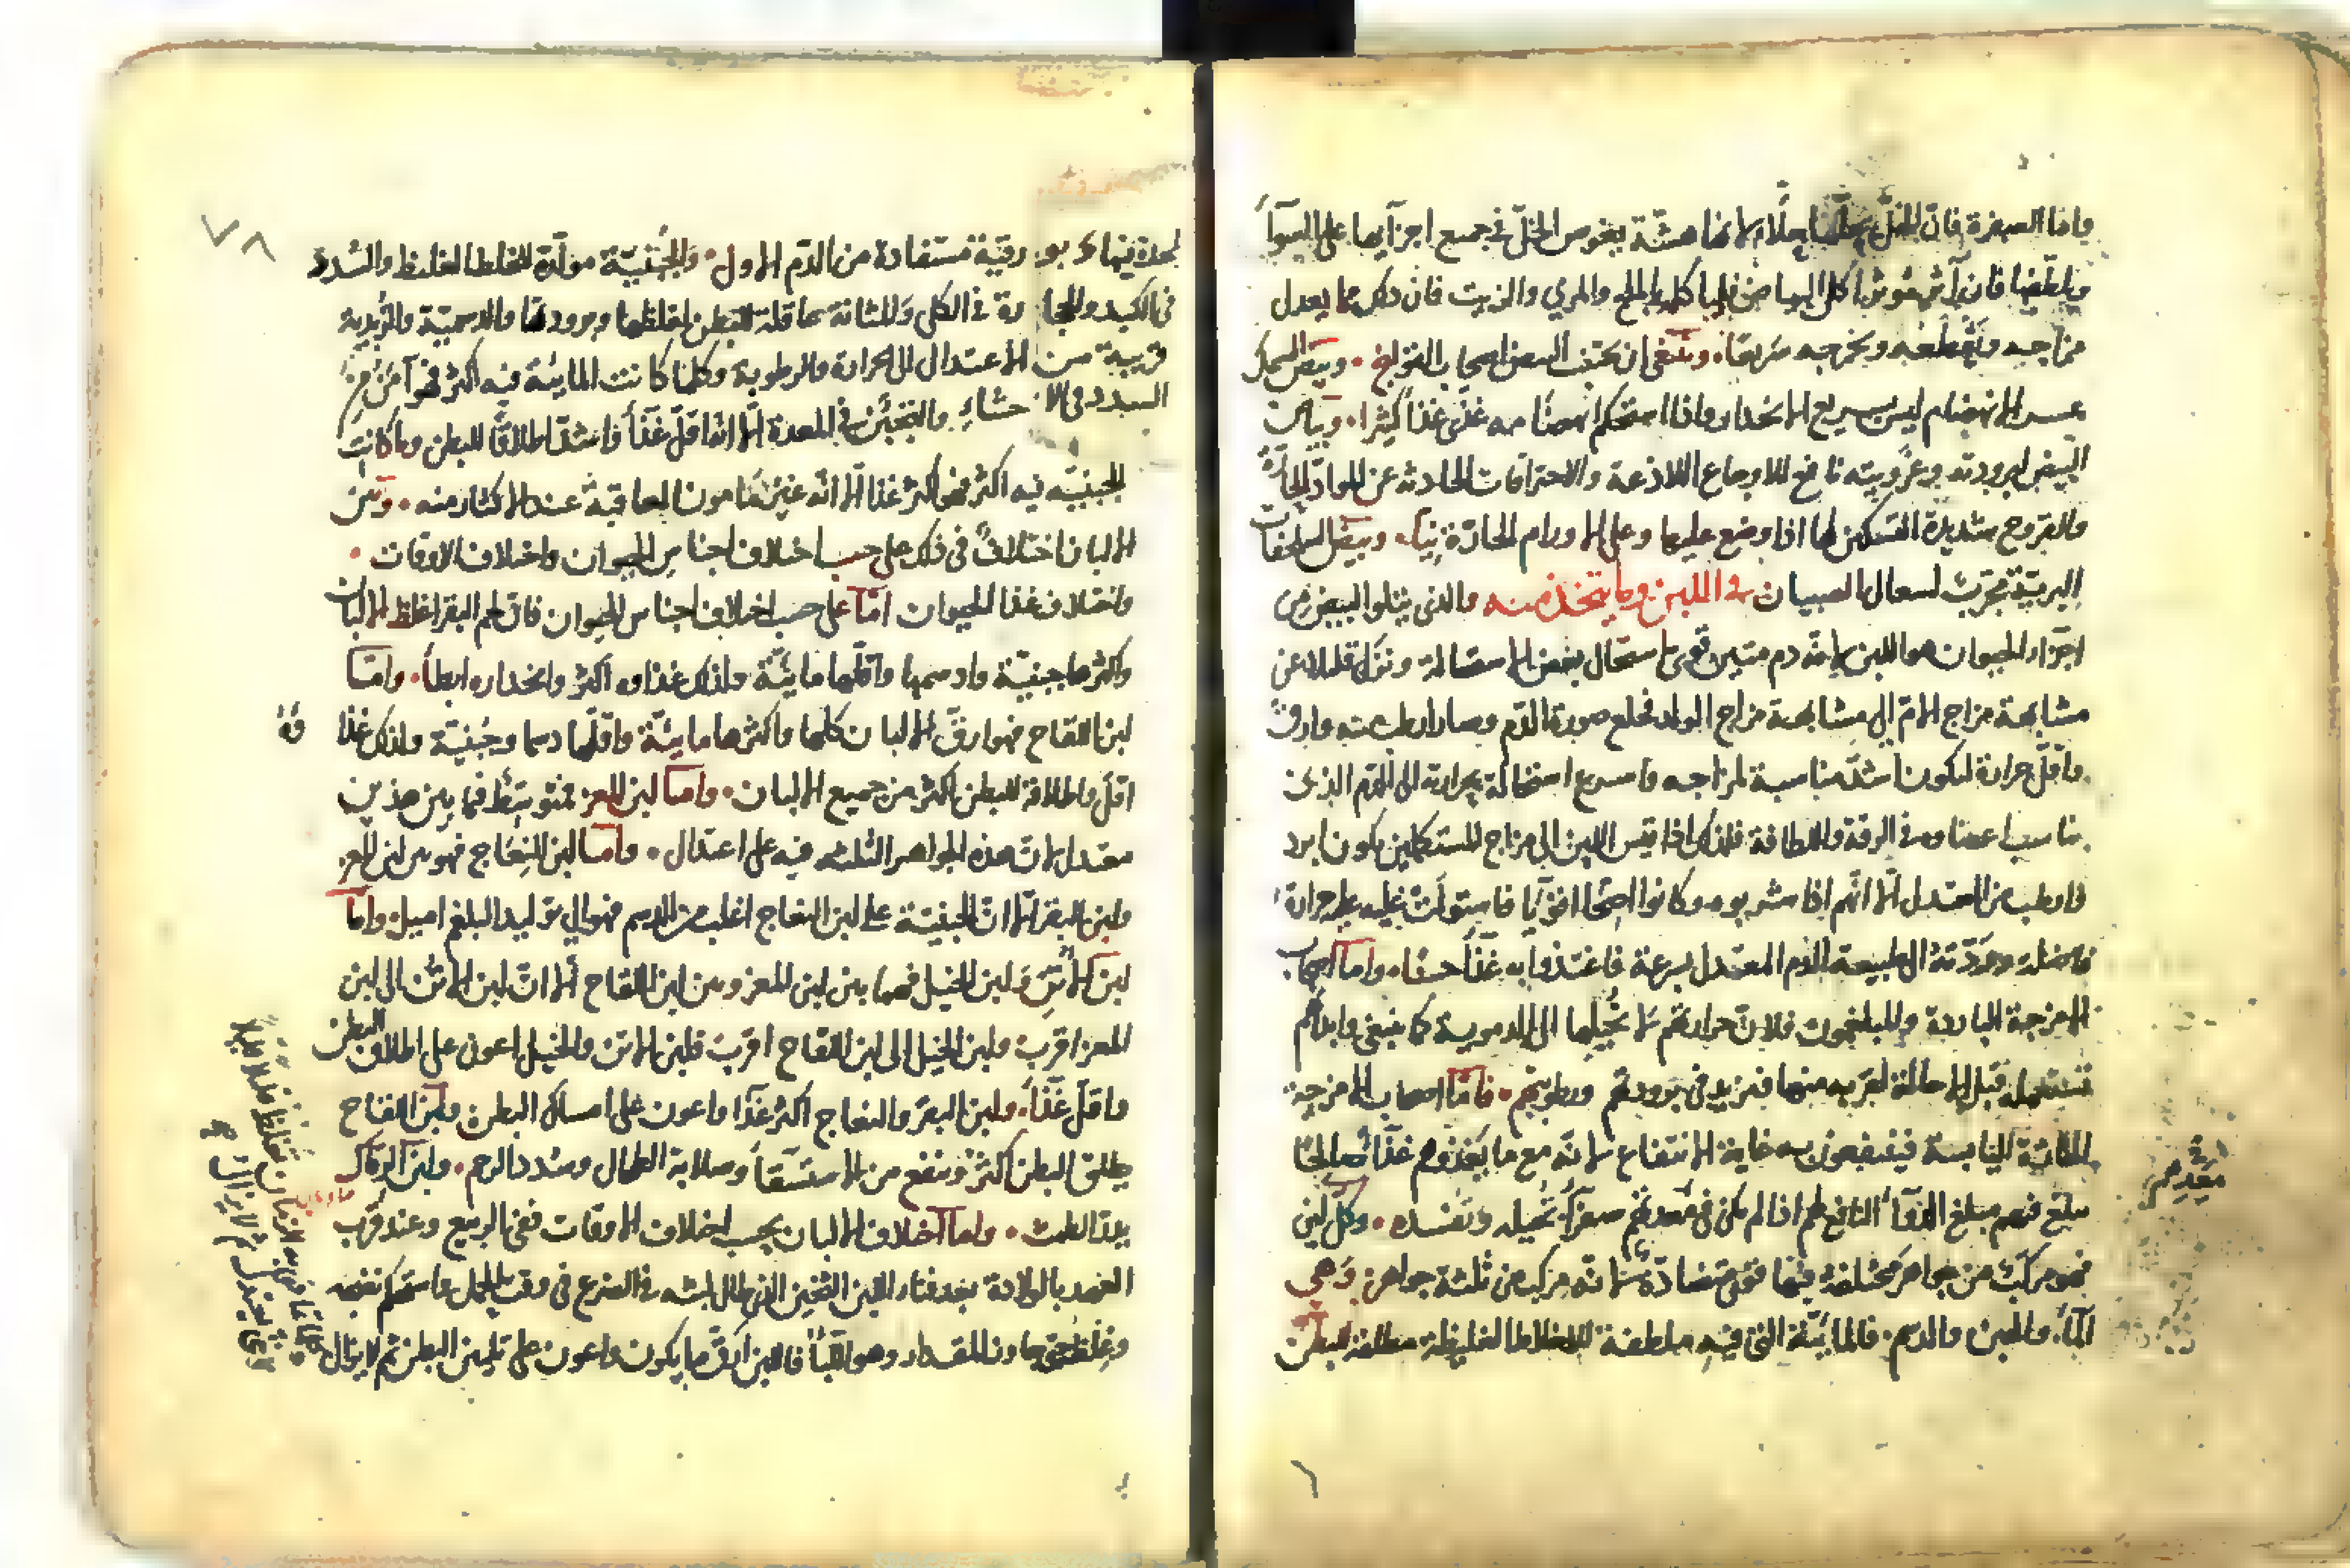 واما الصفرة فان الخل لانها هشة يغوص الخل في جميع اجزآيها على السوآ
ويلطفها فان آثر مؤثر اكل البياض فلياكله بالملح والمري والزيت فان ذلك مما يعدل
مزاجه ويقطعه ويخرجه سريعا. وينبغي ان يجتنب البيض اصحاب القولنج. وبيض السمك
عسر الانهضام ليس بسريع الانحدار واذا استحكم انهضامه غذى غذآ كثيرا. وبياض
البيض لبرودته وغرويته نافع للاوجاع اللاذعة والاحتراقات الحادثة عن المواد الحادة
والقروح شديد التسكين لها اذا وضع عليها وعلى الاورام الحارة نيئا. وبيض السلحفات
البرية مجرب لسعال الصبيان في اللبن وما يتخذ منه والذي يتلوا البيض من
اجزاء الحيوان هو اللبن لانه دم متين نقي استحال بعض الاستحالة ونزل قليلا عن
مشابهة مزاج الام الى مشابهة مزاج المولد فخلع صورة الدم وصار ارطب منه وارق
واقل حرارة ليكون اشد مناسبة لمزاجه واسرع استحالة بحرارته الى الدم الذي
يناسب اعضاوه في الرقة واللطافة فلذلك اذا قيس اللبن الى مزاج المستكملين يكون ابرد
وارطب من المعتدل الا انهم اذا شربوه وكانوا اصحا اقويا فاستولت عليه حرارة
فاضلة وردته الطبيعة الى الدم المعتدل بسرعة فاغتذوا به غذآ حسنا. واما اصحاب
الامزجة الباردة والبلغميون فلان حرارتهم لا تحيلها الى الدموية كما ينبغي وابدانهم
تستعمله قبل الاحالة لقربه منها فيزيد في برودتهم ورطوبتهم. فاما اصحاب الامزجة
الحارة اليابسة فينتفعون به غاية الانتفاع لانه مع ما يغذوهم غذآ صالحا
يبلغ فيهم مبلغ الدوآ النافع لهم اذا لم يكن في معدتهم صفرآ تحيله وتفسده. وكل لبن
فهو مركب من جواهر مختلفة فيها قوى متضادة لانه مركب من ثلثة جواهر. وهي
المآ. والجبن والدسم. فالمائية التي فيه ملطفة للاخلاط الغليظة مطلقة للبطن
معدتهم
٧٨
رقيقة مستفادة من الدم الاول. والجبنية مولدة للخلط الغليظ والسدد
في الكبد والحجارة في الكلى والمثانة عاقلة للبطن لغلظها وبرودتها والدسمية والزبدية
قريبة من الاعتدال الى الحرارة والرطوبة وكلما كانت المائية فيه اكثر فهو آمن من
السدد في الاحشاء والتجبن في المعدة الا انها اقل غذآ واشد اطلاقا للبطن وما كانت
الجبنية فيه اكثر فهو اكثر غذآ الا انه غير مامون العاقبة عند الاكثار منه. وبين
الالبان اختلاف في ذلك على حسب اختلاف اجناس الحيوان واختلاف الاوقات.
واختلاف غذا الحيوان اما على حسب اختلاف اجناس الحيوان فان لبن البقر اغلظ الالبان
واكثرها جبنية وادسمها واقلها مائية ولذلك غذاوه اكثر وانحداره ابطأ. واما
لبن اللقاح فهو ارق الالبان كلها واكثرها مائية واقلها دسما وجبنية ولذلك غذا
وه
اقل واطلاقه للبطن اكثر من جميع الالبان. واما لبن المعز فمتوسط فيما بين هذين
معتدل لان هذه الجواهر الثلثة فيه على اعتدال. واما لبن النعاج فهو بين لبن المعز
ولبن البقر الا ان الجبنية على لبن النعاج اغلب من الدسم فهو الى توليد البلغم اميل. واما
لبن الاتن ولبن الخيل فهما بين لبن المعز وبين لبن اللقاح الا ان لبن الاتن الى لبن
المعز اقرب ولبن الخيل الى لبن اللقاح اقرب فلبن الاتن والخيل اعون على اطلاق البطن
واقل غذآ. ولبن البقر والنعاج اكثر غذآ واعون على امساك البطن ولبن اللقاح
يطلق البطن اكثر وينفع من الاستسقآ وصلابة الطحال وسدد الرحم. ولبن الرماك
يدر الطمث. واما اختلاف الالبان بحسب اختلاف الاوقات ففي الربيع وعند قرب
العهد بالولادة بعد فناء اللبن الثخين الذي طال لبثه في الضرع في وقت الحمل واستحكم نضجه
وغلظ حتى جاوز المقدار وهو اللبأ فاللبن ارق ما يكون واعون على تليين البطن ثم لا يزال